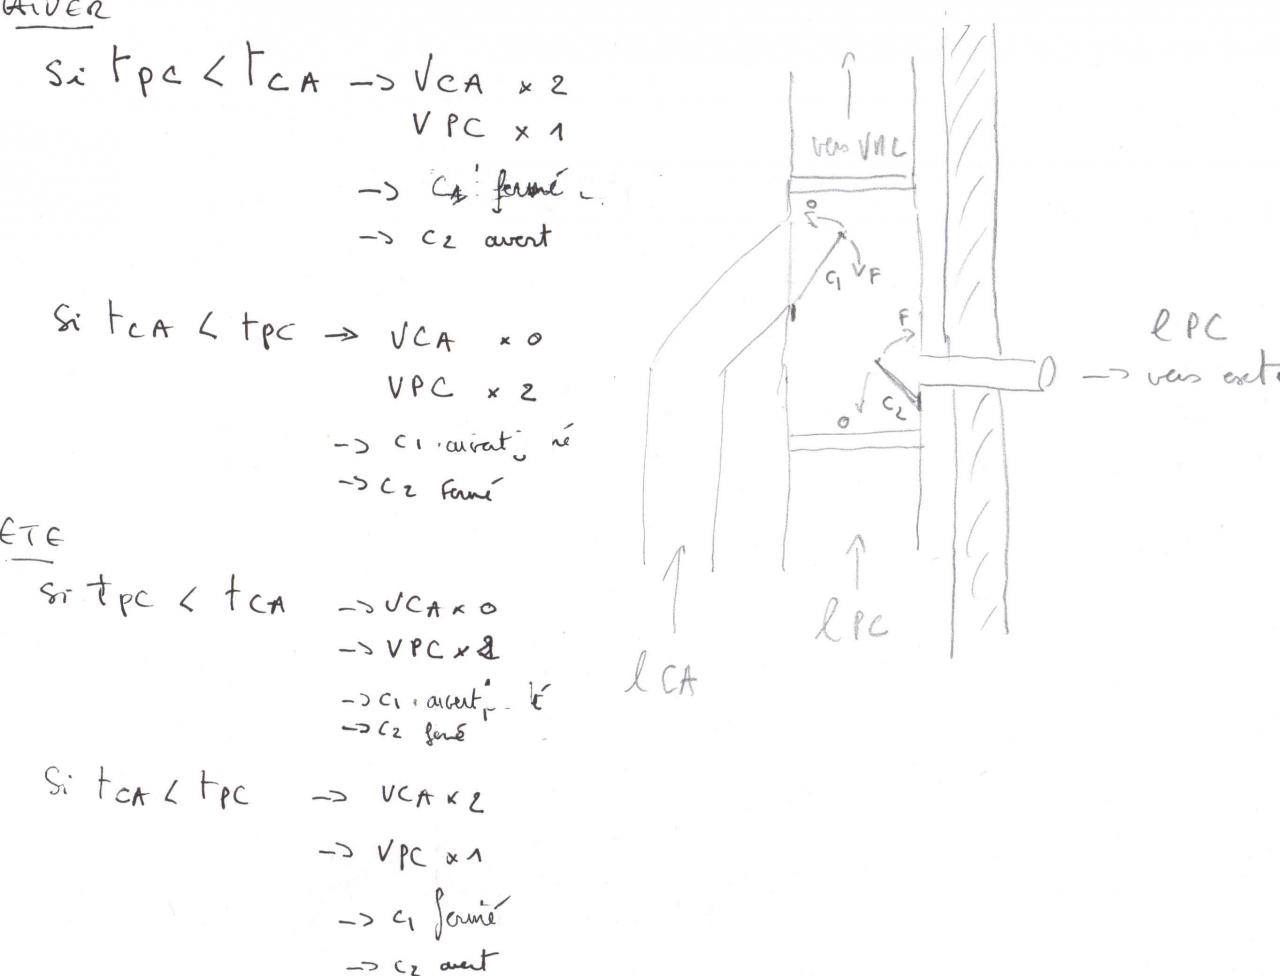 HIVER
Si tPC < tCA -> VCA x 2
VPC x 1
-> C1 fermé
-> C2 ouvert
Si tCA < tPC -> VCA x 0
VPC x 2
-> C1 ouvert
-> C2 Fermé
ETE
Si tPC < tCA -> VCA x 0
-> VPC x 2
-> C1 ouvert
-> C2 fermé
Si tCA < tPC -> VCA x 2
-> VPC x 1
-> C1 fermé
-> C2 ouvert
vers VMC
O
C1
F
F
C2
O
l PC
-> vers ext
l PC
l CA